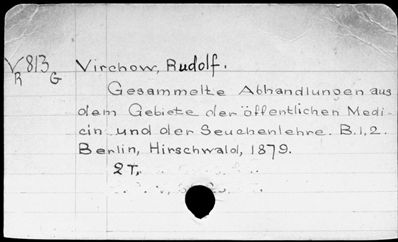 V 813 Virchow, Rudolf.
R G
Gesammelte Abhandlungen aus
dem Gebiete der öffentlichen Medi-
cin und der Seuchenlehre. B.1,2.
Berlin, Hirschwald, 1879.
2 T.